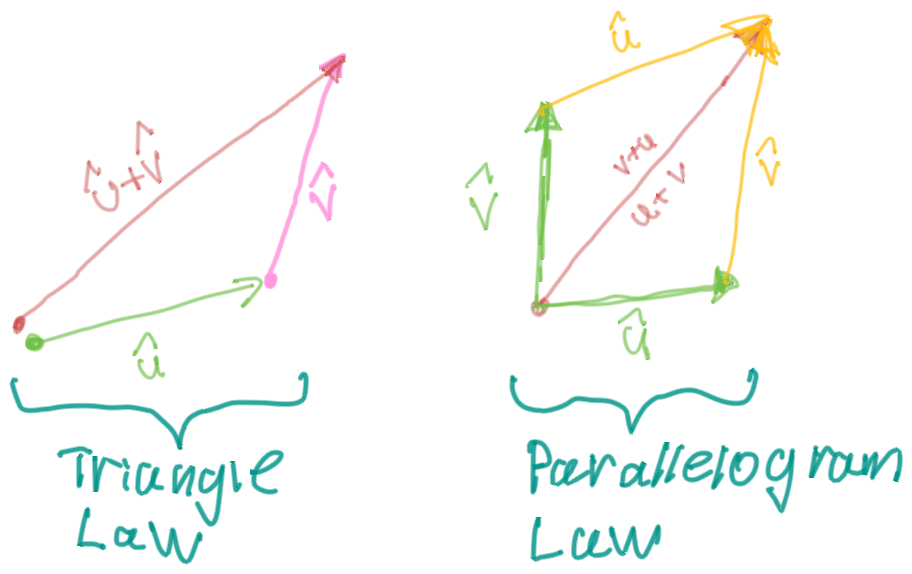 û+v̂
v̂
û
Triangle
Law
û
v̂
v+u
u+v
v̂
û
Parallelogram
Law